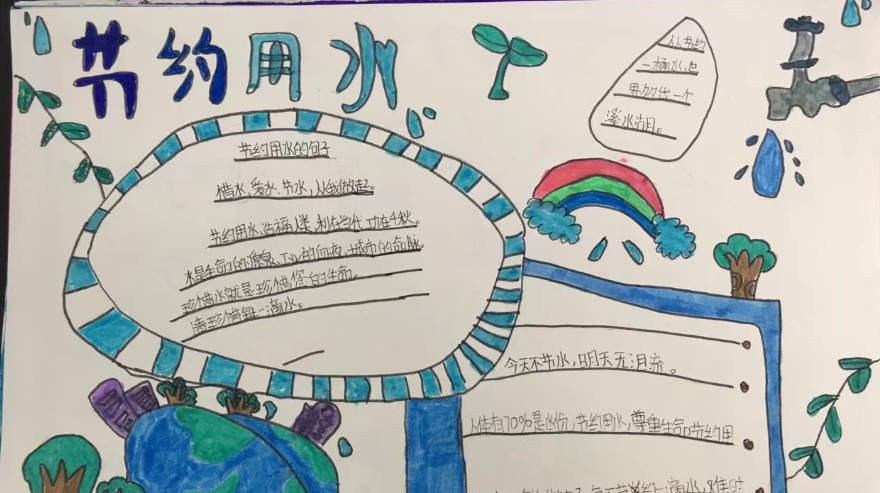 节约用水
节约用水的句子
惜水、爱水、节水，从我做起。
节约用水、造福人类，利在当代，功在千秋。
水是生命的源泉、工业的血液、城市的命脉。
珍惜水就是珍惜您的生命。
请珍惜每一滴水。
从节约
一桶水
出一个
今天不节水，明天无泪流。
人体有70%是水份，节约用水，尊重生命节约用
一滴水，